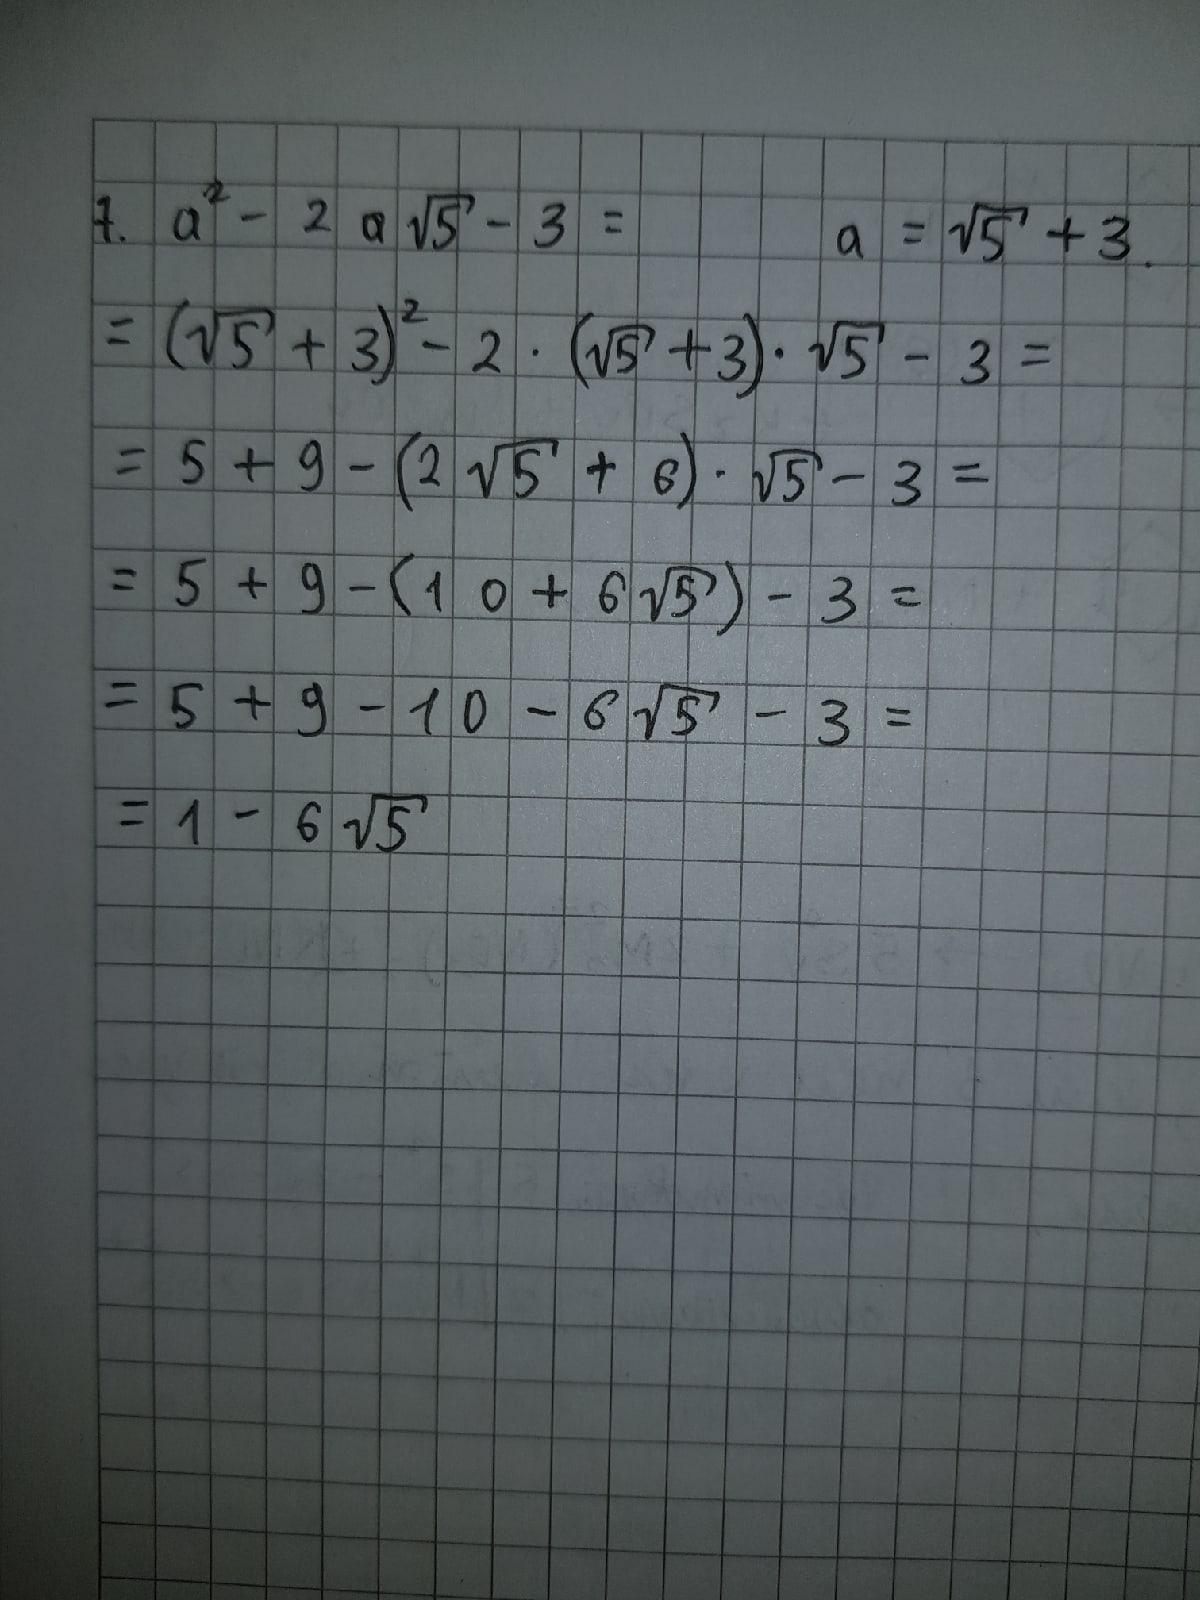 7. a² - 2a√5 - 3 = a = √5 + 3.
= (√5 + 3)² - 2 · (√5 + 3) · √5 - 3 =
= 5 + 9 - (2√5 + 6) · √5 - 3 =
= 5 + 9 - (10 + 6√5) - 3 =
= 5 + 9 - 10 - 6√5 - 3 =
= 1 - 6√5